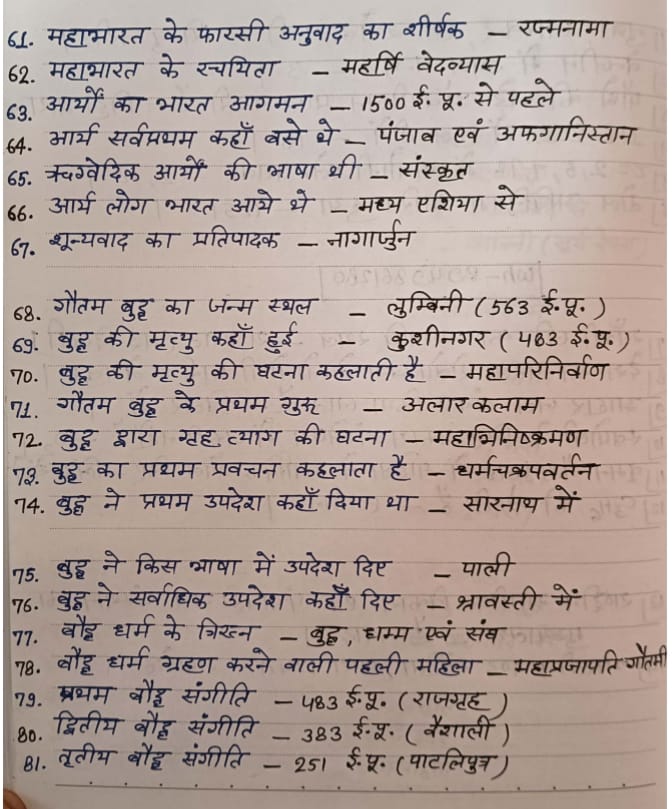 61. महाभारत के फारसी अनुवाद का शीर्षक – रज्मनामा
62. महाभारत के रचयिता – महर्षि वेदव्यास
63. आर्यों का भारत आगमन – 1500 ई. पू. से पहले
64. आर्य सर्वप्रथम कहाँ बसे थे – पंजाब एवं अफगानिस्तान
65. ऋग्वेदिक आर्यों की भाषा थी – संस्कृत
66. आर्य लोग भारत आये थे – मध्य एशिया से
67. शून्यवाद का प्रतिपादक – नागार्जुन
68. गौतम बुद्ध का जन्म स्थल – लुम्बिनी (563 ई.पू.)
69. बुद्ध की मृत्यु कहाँ हुई – कुशीनगर (483 ई.पू.)
70. बुद्ध की मृत्यु की घटना कहलाती है – महापरिनिर्वाण
71. गौतम बुद्ध के प्रथम गुरू – अलार कलाम
72. बुद्ध द्वारा गृह त्याग की घटना – महाभिनिष्क्रमण
73. बुद्ध का प्रथम प्रवचन कहलाता है – धर्मचक्रपवर्तन
74. बुद्ध ने प्रथम उपदेश कहाँ दिया था – सारनाथ में
75. बुद्ध ने किस भाषा में उपदेश दिए – पाली
76. बुद्ध ने सर्वाधिक उपदेश कहाँ दिए – श्रावस्ती में
77. बौद्ध धर्म के त्रिरत्न – बुद्ध, धम्म एवं संघ
78. बौद्ध धर्म ग्रहण करने वाली पहली महिला – महाप्रजापति गौतमी
79. प्रथम बौद्ध संगीति – 483 ई.पू. (राजगृह)
80. द्वितीय बौद्ध संगीति – 383 ई.पू. (वैशाली)
81. तृतीय बौद्ध संगीति – 251 ई.पू. (पाटलिपुत्र)